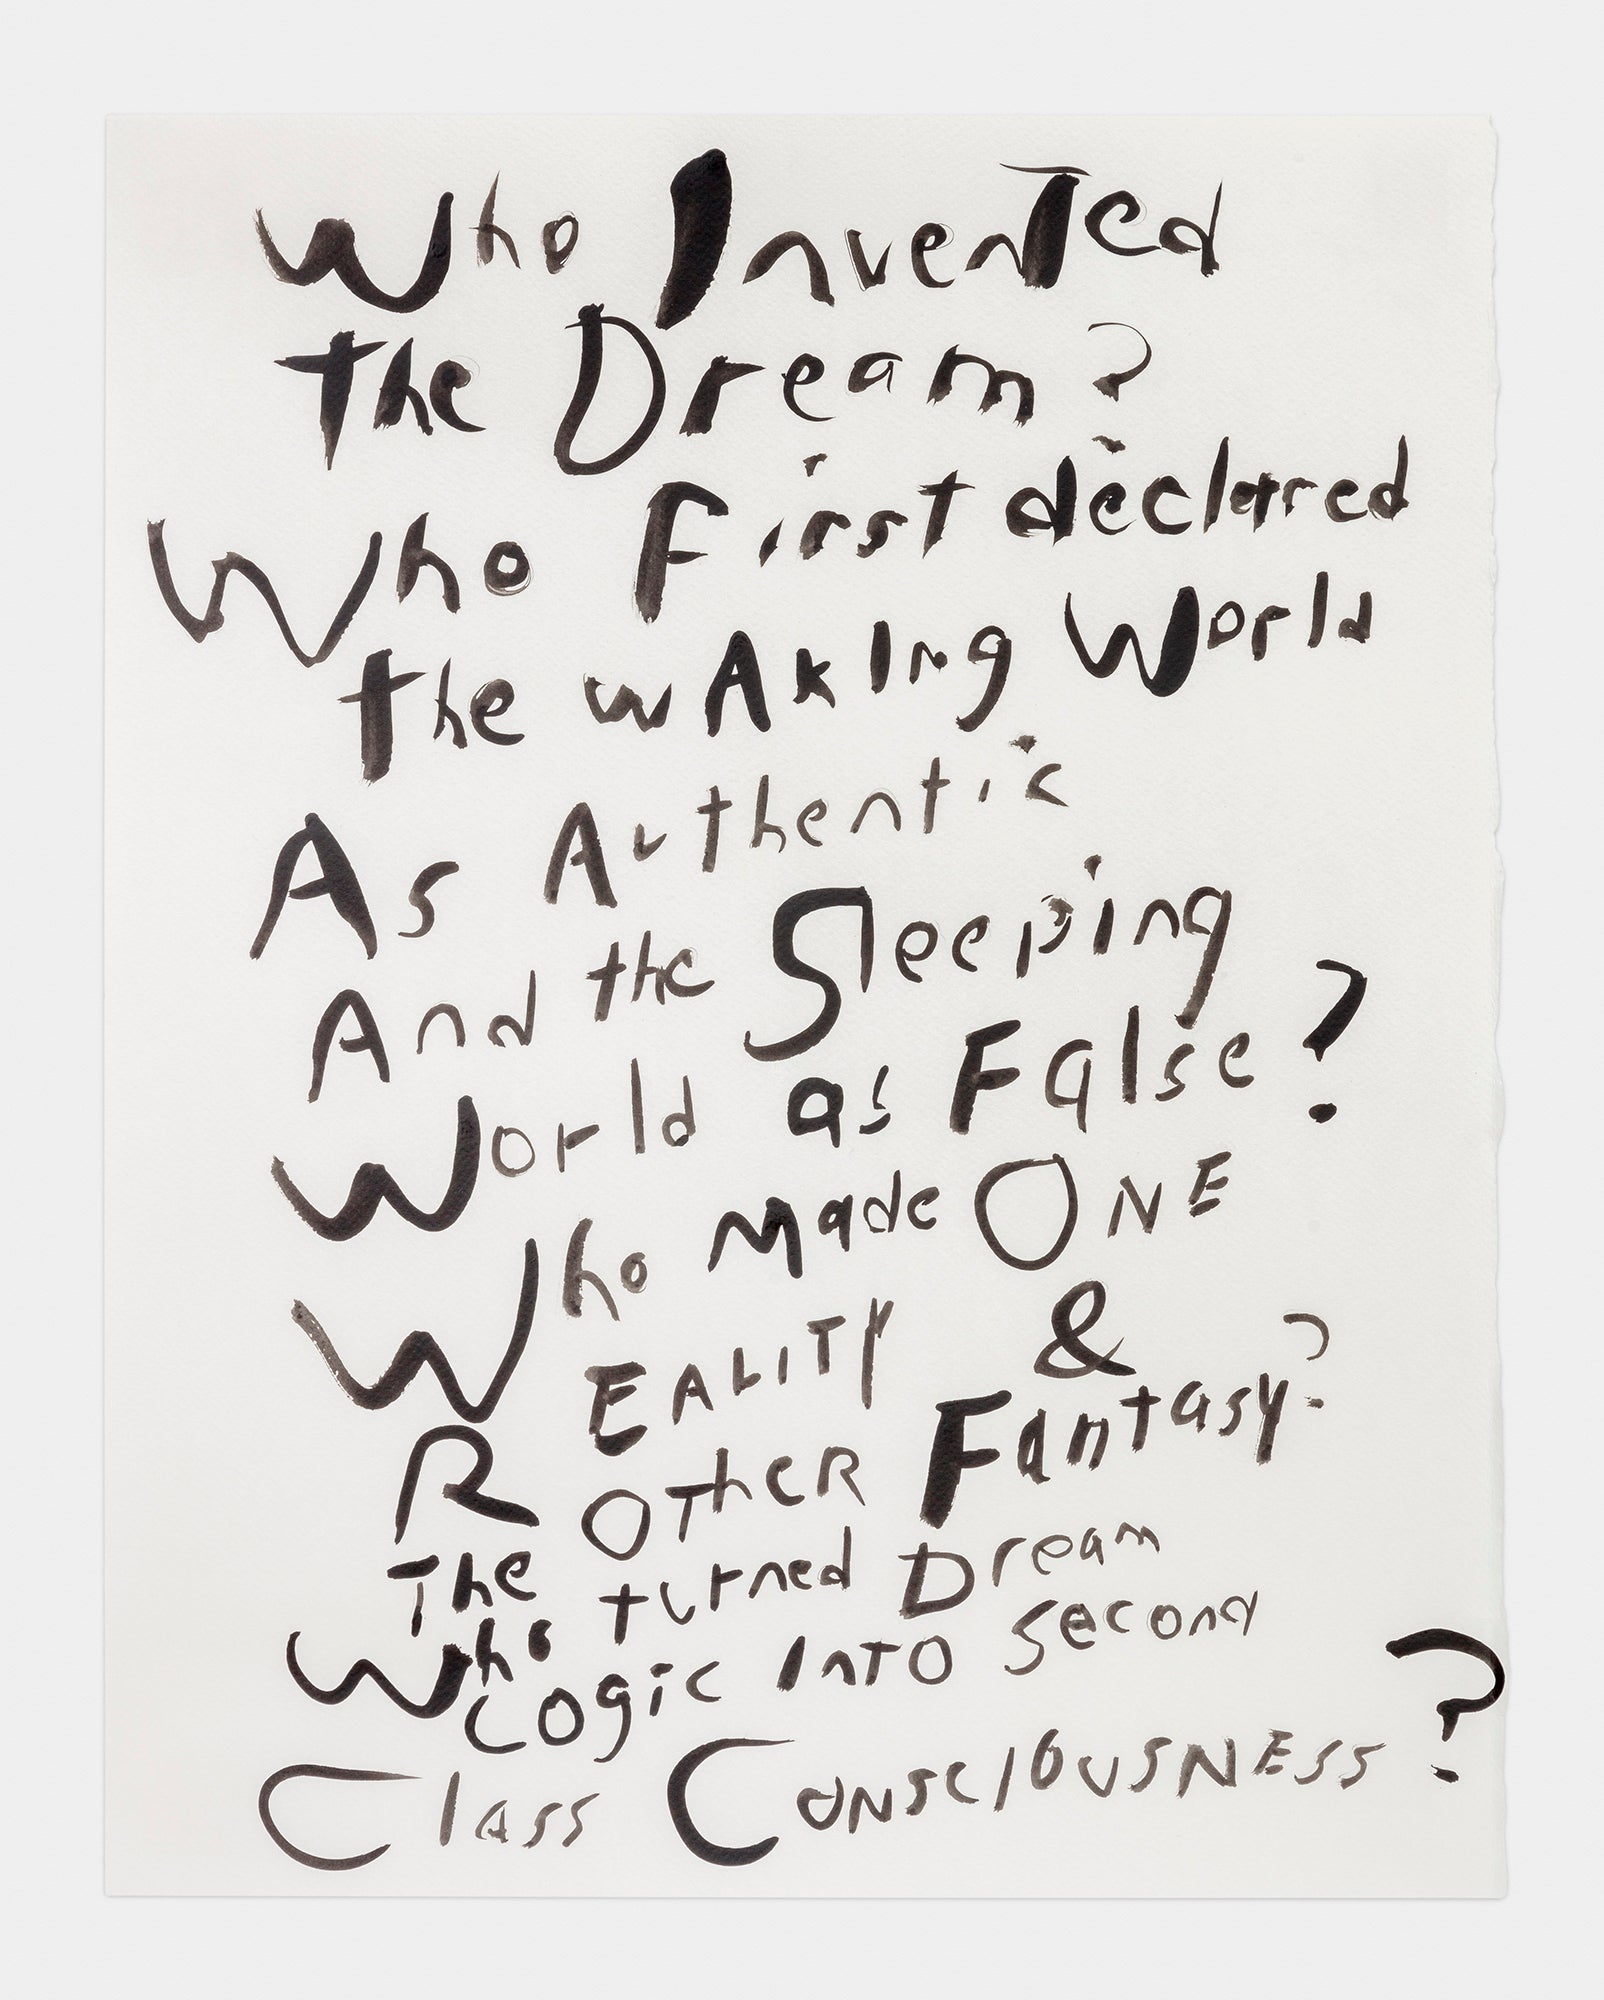 Who Invented
the Dream?
Who First declared
the wAkIng World
As Authentic
And the Sleeping
World as False?
Who made ONE
REALITY &
The OTher Fantasy?
Who turned Dream
Logic InTO Second
Class ConsciousNESS?